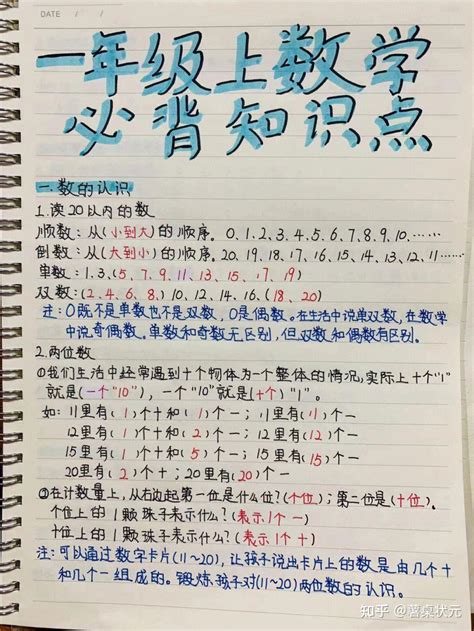 DATE / /
一年级上数学
必背知识点
一.数的认识
1.读20以内的数
顺数：从(小到大)的顺序。0、1、2、3、4、5、6、7、8、9、10、……
倒数：从(大到小)的顺序。20、19、18、17、16、15、14、13、12、11……
单数：1、3、(5、7、9、11、13、15、17、19)
双数：(2、4、6、8、)10、12、14、16、(18、20)
注：0既不是单数也不是双数，0是偶数。在生活中说单双数，在数学
中说奇偶数。单数和奇数无区别，但双数和偶数有区别。
2.两位数
①我们生活中经常遇到十个物体为一个整体的情况，实际上十个"1"
就是(一个"10")，一个"10"就是(十个)"1"。
如：11里有(1)个十和(1)个一；11里有(11)个一
12里有(1)个十和(2)个一；12里有(12)个一
15里有(1)个十和(5)个一；15里有(15)个一
20里有(2)个十；20里有(20)个一
②在计数量上，从右边起第一位是什么位？(个位)；第二位是(十位)。
个位上的1颗珠子表示什么？(表示1个一)
十位上的1颗珠子表示什么？(表示1个十)
注：可以通过数字卡片(11～20)，让孩子说出卡片上的数是由几个十
和几个一组成的。锻炼孩子对(11～20)两位数的认识。
知乎 @薯桌状元